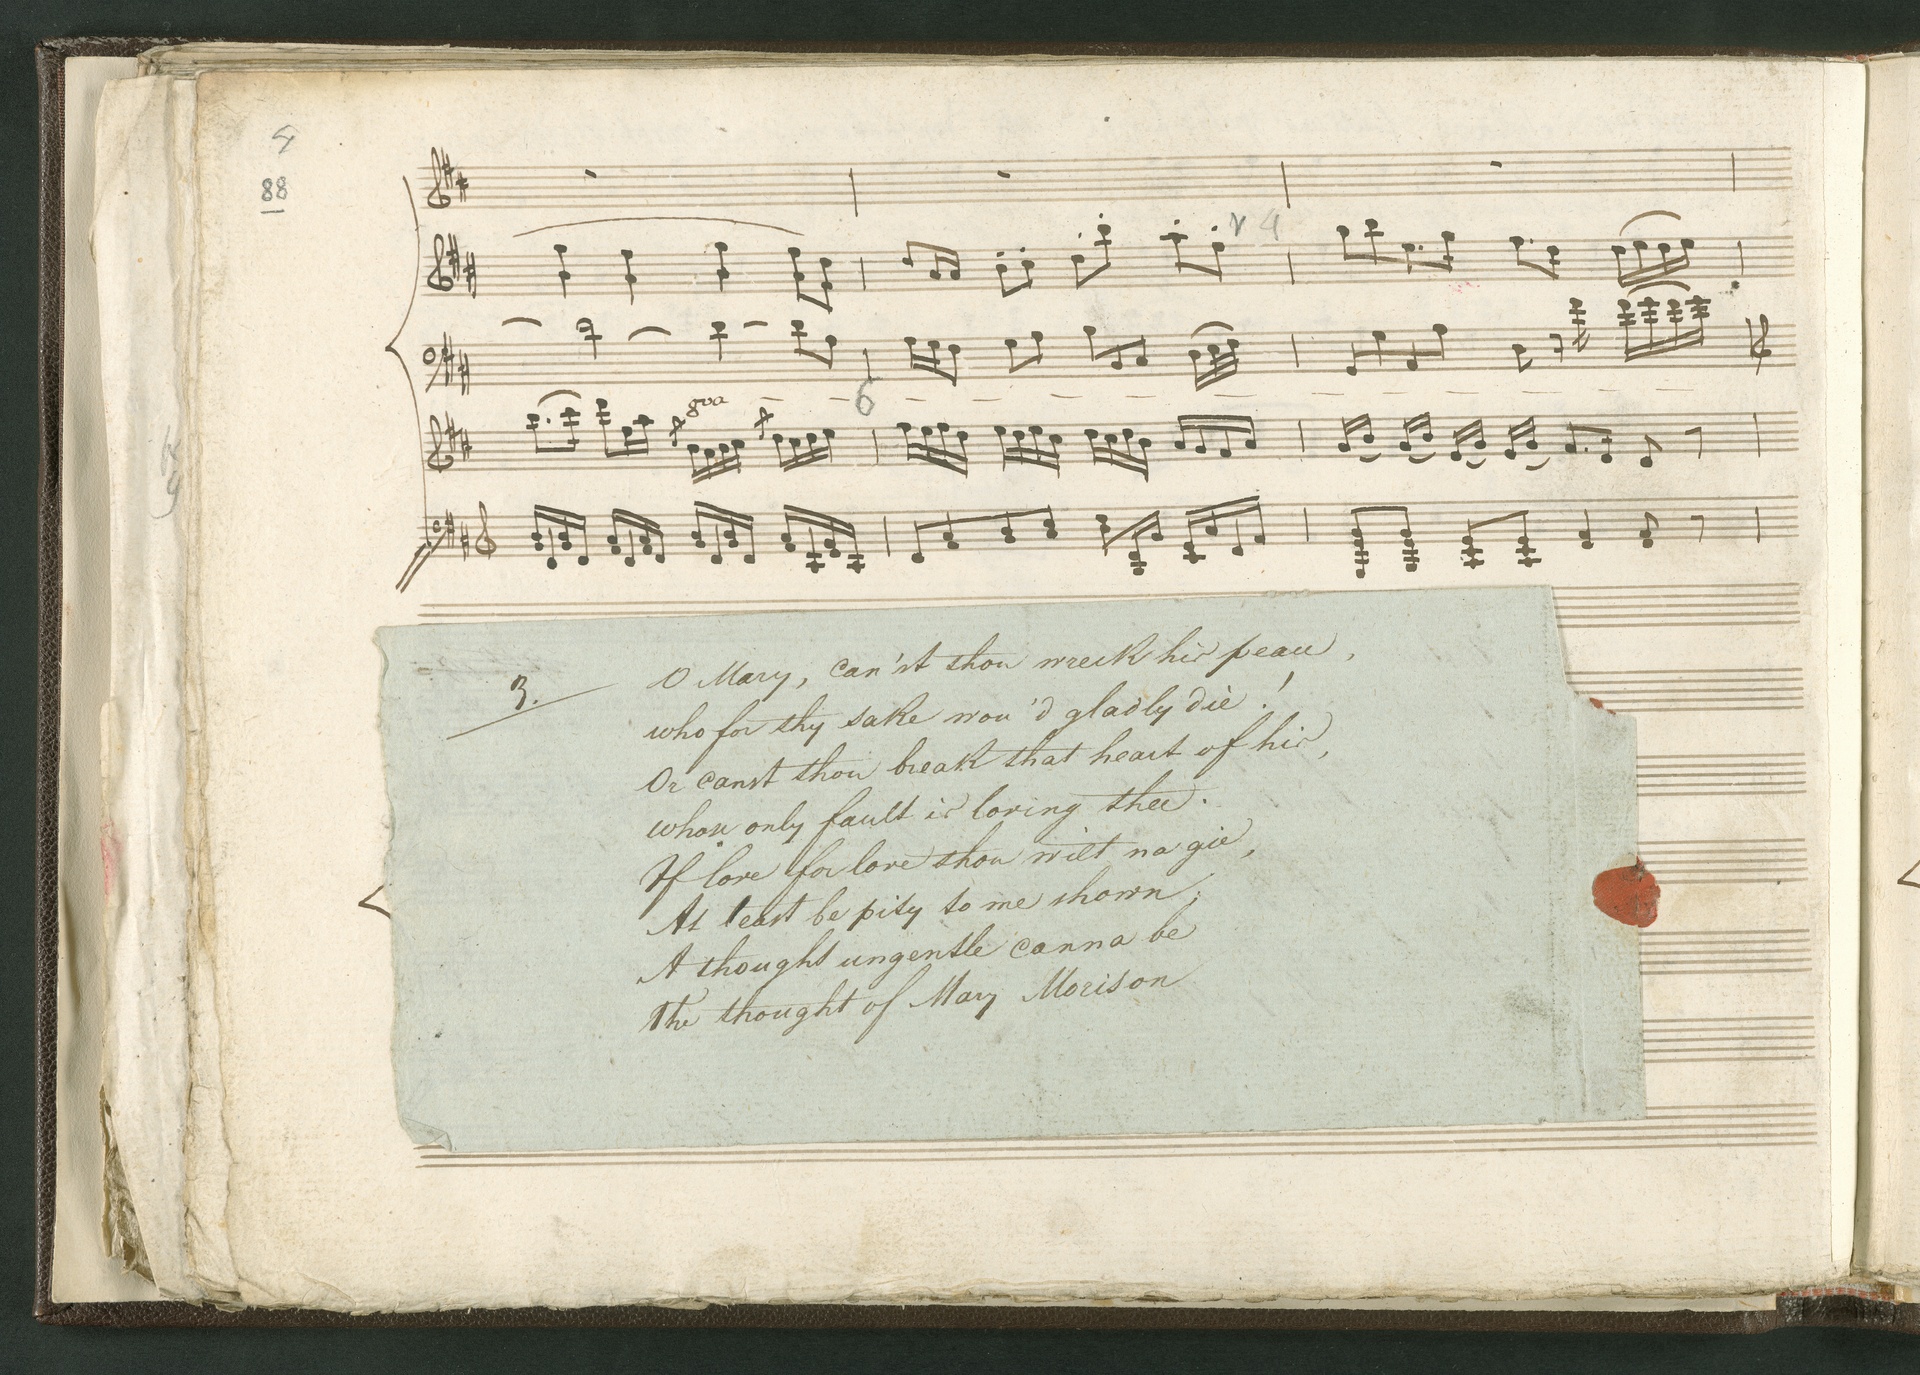 4
88
γ 4
8va
6
3.
O Mary, can'st thou wreck his peace,
who for thy sake wou'd gladly die!
Or canst thou break that heart of his,
whose only fault is loving thee.
If love for love thou wilt na gie,
At least be pity to me shown;
A thought ungentle canna be
The thought of Mary Morison